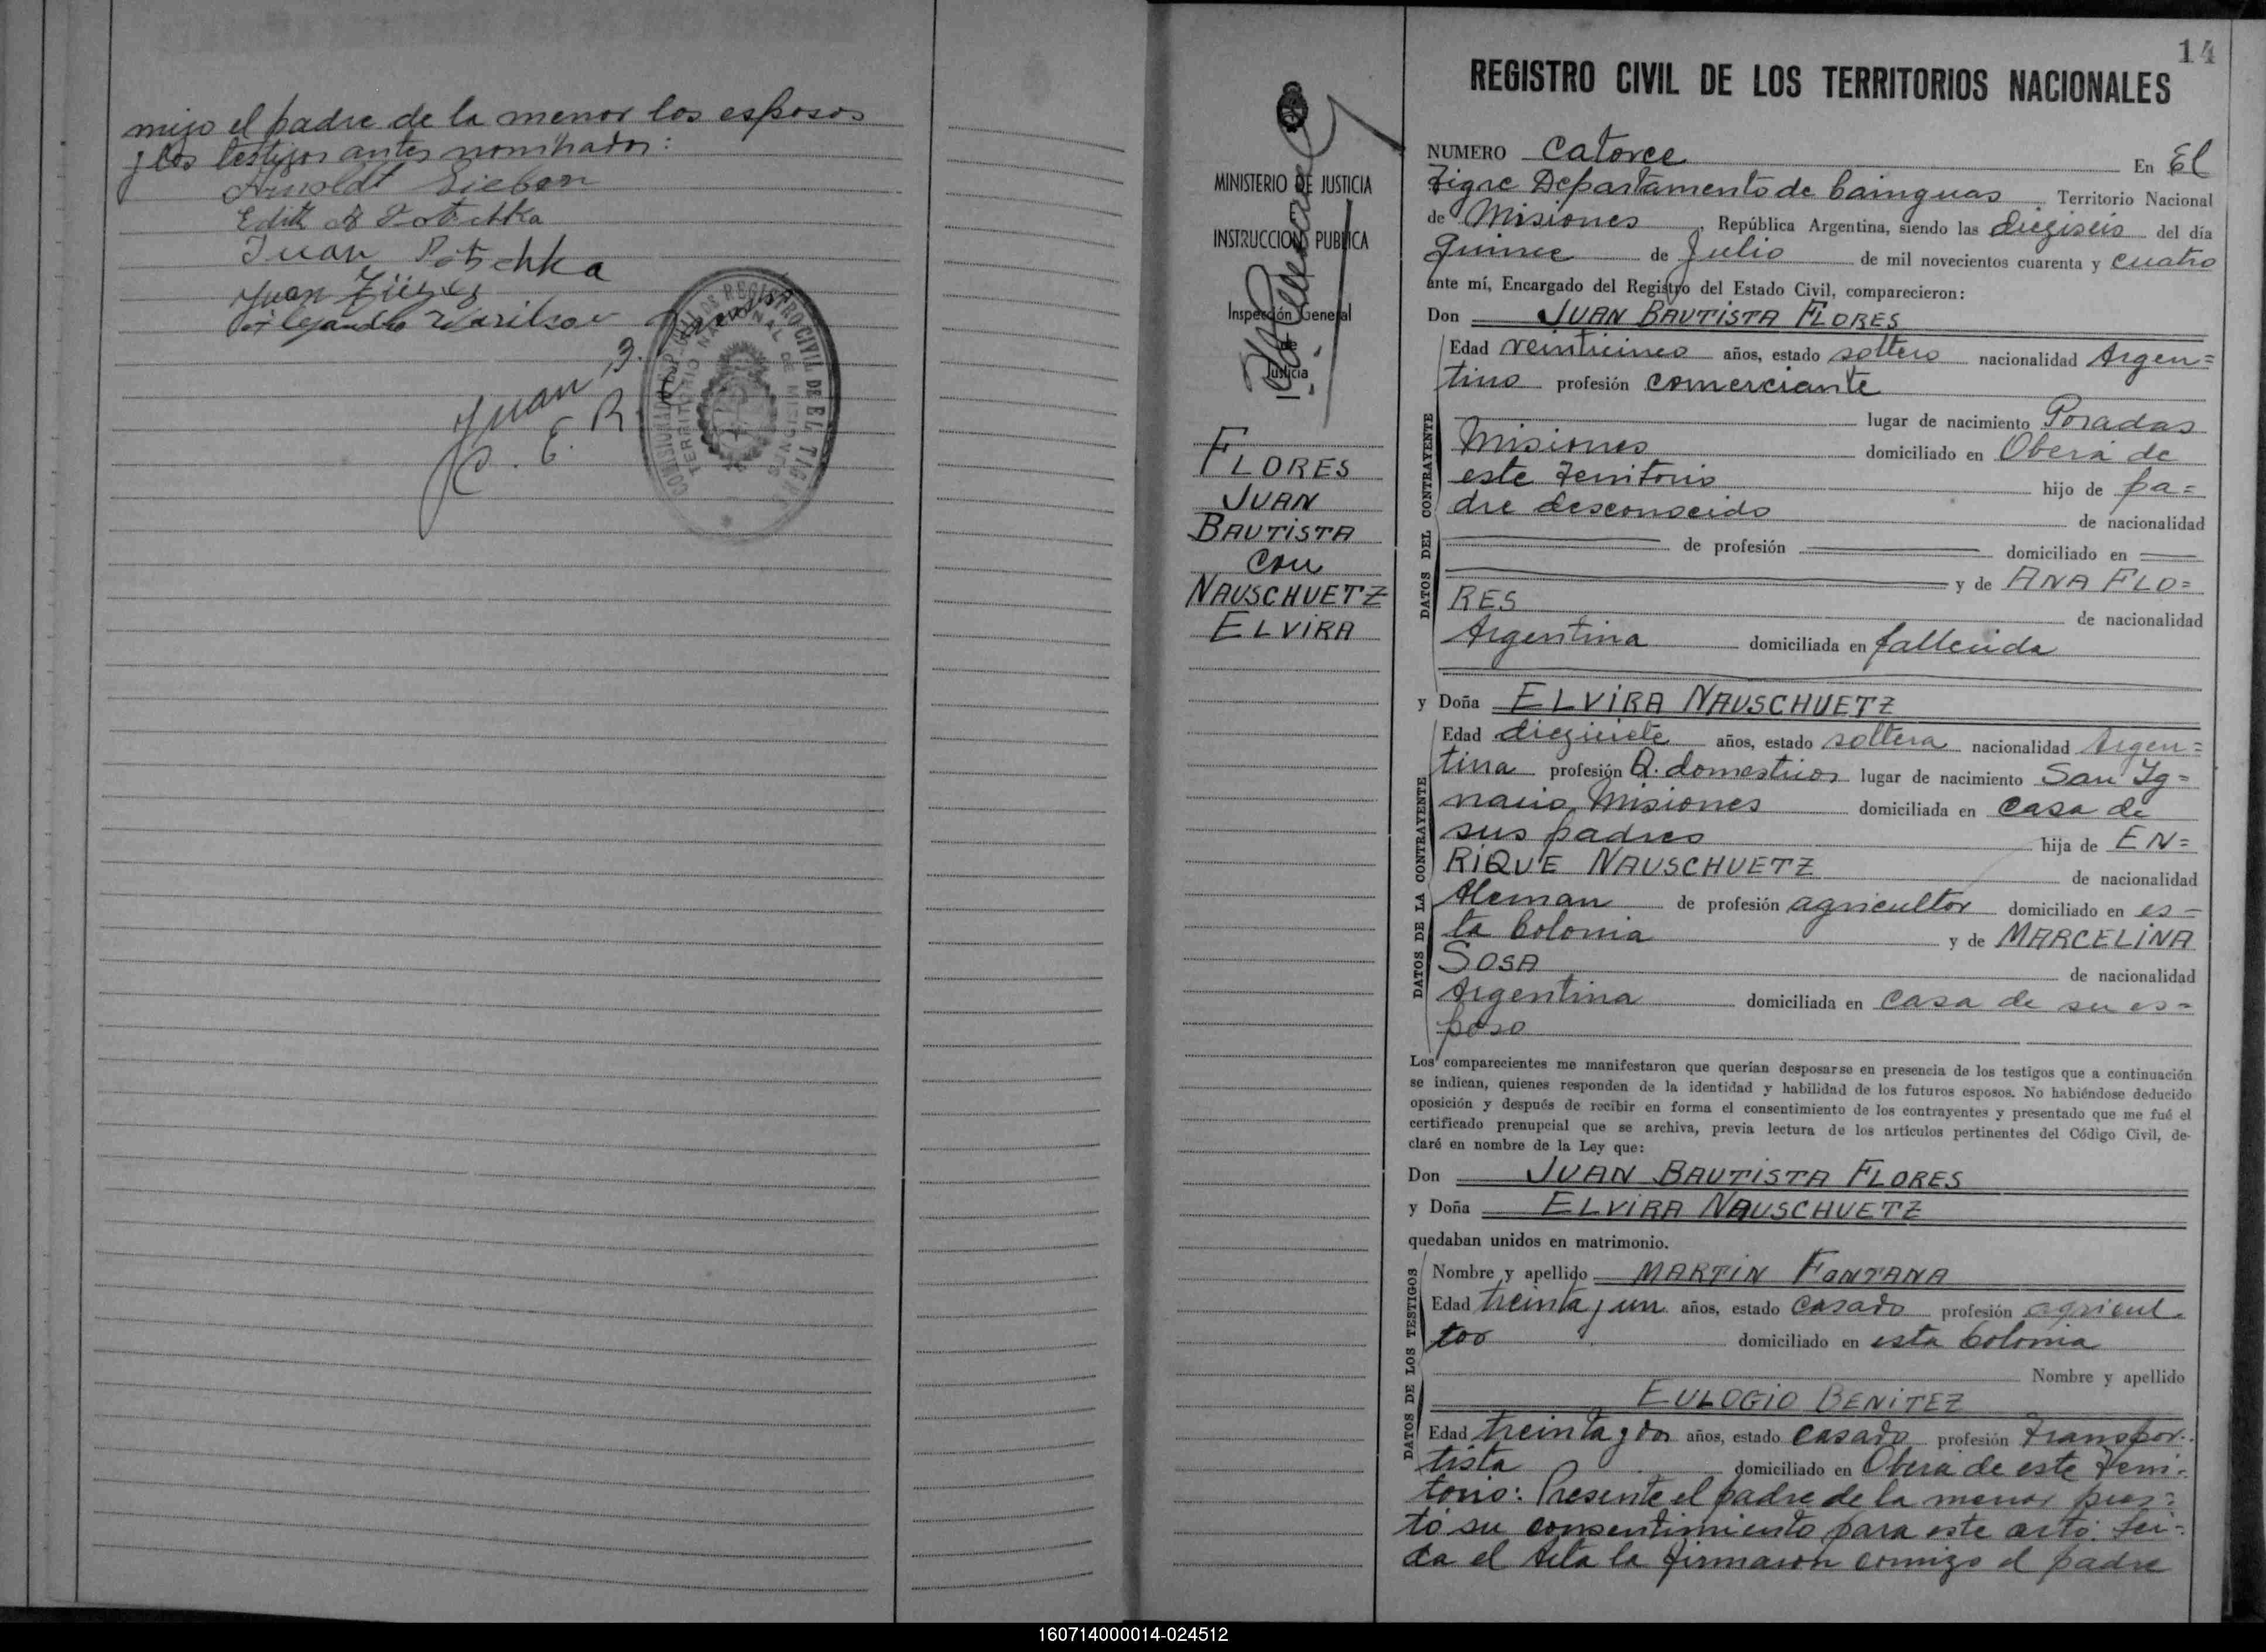 migo el padre de la menor los esposos
y los testigos antes nombrados:
Arnoldt Sieben
Edith
Juan Potschka
Juan
Alejandro
Juan B.
C. E. R.
COMISION AD. H. DE REGISTRO CIVIL DE EL TIGRE
TERRITORIO NACIONAL DE MISIONES
14
MINISTERIO DE JUSTICIA
INSTRUCCION PUBLICA
Inspección General
de
Justicia
FLORES
JUAN
BAUTISTA
con
NAUSCHUETZ
ELVIRA
REGISTRO CIVIL DE LOS TERRITORIOS NACIONALES
NUMERO Catorce En El
Tigre Departamento de Cainguas Territorio Nacional
de Misiones, República Argentina, siendo las dieziseis del día
quince de Julio de mil novecientos cuarenta y cuatro
ante mí, Encargado del Registro del Estado Civil, comparecieron:
Don JUAN BAUTISTA FLORES
DATOS DEL CONTRAYENTE
Edad veinticinco años, estado soltero nacionalidad Argen=
tino profesión comerciante
lugar de nacimiento Posadas
Misiones domiciliado en Oberá de
este Territorio hijo de pa=
dre desconocido de nacionalidad
de profesión domiciliado en
y de ANA FLO=
RES de nacionalidad
Argentina domiciliada en fallecida
y Doña ELVIRA NAUSCHUETZ
DATOS DE LA CONTRAYENTE
Edad diezisiete años, estado soltera nacionalidad Argen=
tina profesión Q. domesticos lugar de nacimiento San Ig=
nacio, Misiones domiciliada en casa de
sus padres hija de EN=
RIQUE NAUSCHUETZ de nacionalidad
Aleman de profesión agricultor domiciliado en es=
ta Colonia y de MARCELINA
SOSA de nacionalidad
Argentina domiciliada en casa de su es=
poso
Los comparecientes me manifestaron que querían desposarse en presencia de los testigos que a continuación
se indican, quienes responden de la identidad y habilidad de los futuros esposos. No habiéndose deducido
oposición y después de recibir en forma el consentimiento de los contrayentes y presentado que me fué el
certificado prenupcial que se archiva, previa lectura de los artículos pertinentes del Código Civil, de-
claré en nombre de la Ley que:
Don JUAN BAUTISTA FLORES
y Doña ELVIRA NAUSCHUETZ
quedaban unidos en matrimonio.
DATOS DE LOS TESTIGOS
Nombre y apellido MARTIN FONTANA
Edad treinta y un años, estado casado profesión agricul
tor domiciliado en esta Colonia
Nombre y apellido
EULOGIO BENITEZ
Edad treinta y dos años, estado casado profesión transpor=
tista domiciliado en Obera de este Terri=
torio: Presente el padre de la menor pres=
tó su consentimiento para este acto. Lei=
da el Acta la firmaron conmigo el padre
160714000014-024512